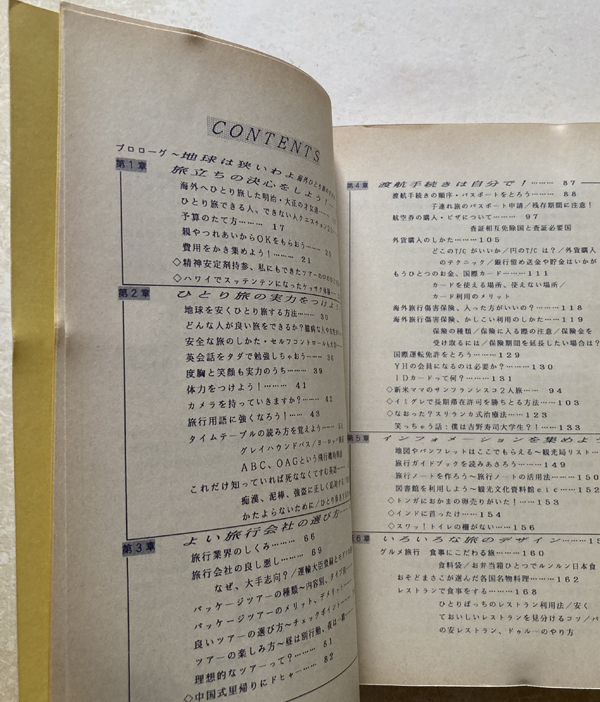 CONTENTS
プロローグ〜地球は狭いわよ
第1章
旅立ちの決心をしよう!
海外へひとり旅した明治・大正の才女達
ひとり旅できる人、できない人
予算のたて方…… 17
親やつれあいからOKをもらおう…… 20
費用をかき集めよう!…… 21
◇精神安定剤持参、私にもできたツアーの
◇ハワイでスッテンテンになったケッサク体
第2章
ひとり旅の実力をつけよう
地球を安くひとり旅する方法…… 30
どんな人が良い旅をできるか?
安全な旅のしかた・セルフコントロールも大
英会話をタダで勉強しちゃおう…… 38
度胸と笑顔も実力のうち…… 39
体力をつけよう!…… 41
カメラを持っていきますか?…… 42
旅行用語に強くなろう!… 43
タイムテーブルの読み方を覚えよう
グレイハウンドバス/ヨーロッ
ABC、OAGという飛行機時
これだけ知っていれば死ななくてすむ英語
痴漢、泥棒、強盗に正しく応対する
かたよらないために/ひとり
第3章
よい旅行会社の選び方
旅行業界のしくみ…… 66
旅行会社の良し悪し…… 69
なぜ、大手志向?/運輸大臣登録と
パッケージツアーの種類〜内容別、タイプ
パッケージツアーのメリット、デメリット
良いツアーの選び方〜チェックポイント
ツアーの楽しみ方〜昼は別行動、夜は
理想的なツアーって?…… 81
◇中国式里帰りにドヒャー…… 82
第4章 渡航手続きは自分で!…… 87
渡航手続きの順序・パスポートをとろう…… 88
子連れ旅のパスポート申請/残存期間に注意!
航空券の購入・ビザについて…… 97
査証相互免除国と査証必要国
外貨購入のしかた…… 105
どこのT/Cがいいか/円のT/Cは?/外貨購入
のテクニック/銀行留め送金や貯金はいかが
もうひとつのお金、国際カード…… 111
カードを使える場所、使えない場所/
カード利用のメリット
海外旅行傷害保険、入った方がいいの?…… 118
海外旅行傷害保険、かしこい利用のしかた…… 119
保険の種類/保険に入る際の注意/保険金を
受け取るには/保険期間を延長したい場合は?
国際運転免許をとろう…… 129
YHの会員になるのは必要か?…… 130
IDカードって何?…… 131
◇新米ママのサンフランシスコ2人旅… 94
◇イミグレで長期滞在許可を勝ちとる方法…… 103
◇なおった?スリランカ式治療法…… 123
笑っちゃう話:僕は吉野寿司大学生?!…… 133
第5章 インフォメーションを集めよう
地図やパンフレットはここでもらえる〜観光局リスト
旅行ガイドブックを読みあさろう…… 149
旅行ノートを作ろう〜旅行ノートの活用法…… 150
図書館を利用しよう〜観光文化資料館etc…… 152
◇トンガにおかまの御売りがいた!…… 153
◇インドに首ったけ…… 154
◇スワッ!トイレの棚がない…… 156
いろいろな旅のデザイン
グルメ旅行 食事にこだわる旅…… 160
食料袋/お弁当箱ひとつでルンルン日本食
おそどまさこが選んだ各国名物料理…… 162
レストランで食事をする…… 168
ひとりぼっちのレストラン利用法/安く
ておいしいレストランを見分けるコツ/パ
の安レストラン、ドゥルーのやり方